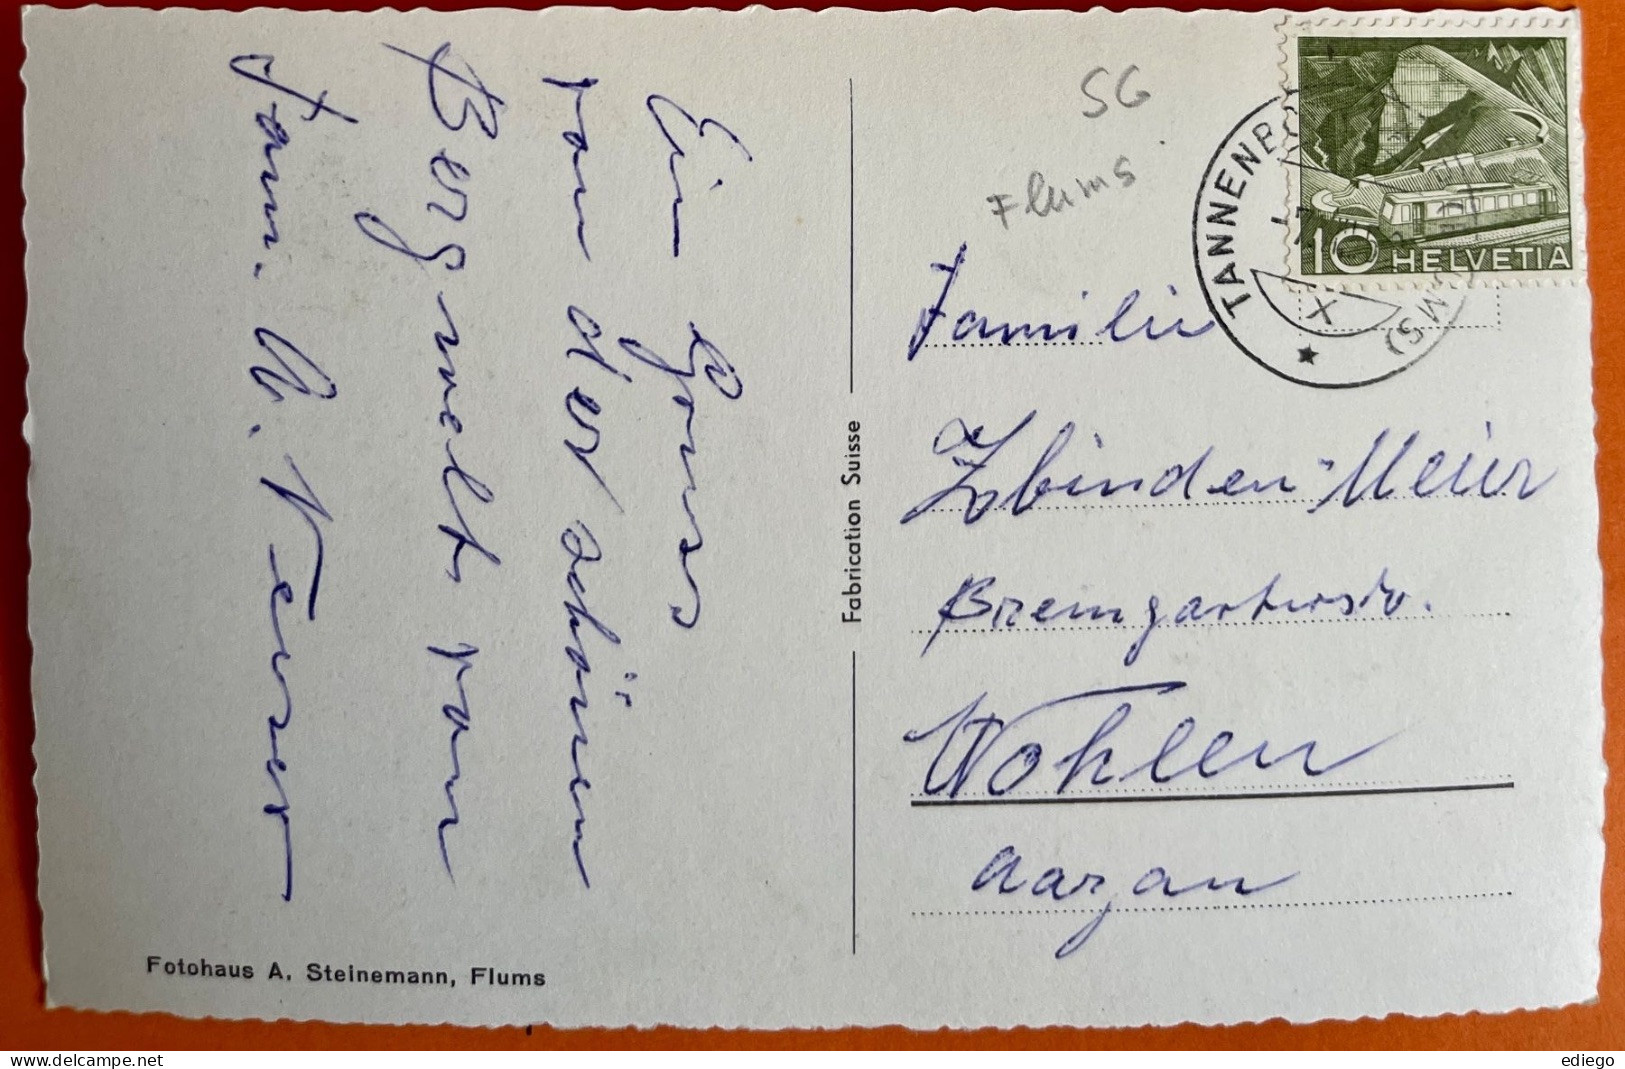 Ein Gruss
von der schönen
Bergwelt von
Fam. W. Neuser
Fotohaus A. Steinemann, Flums
Fabrication Suisse
SG
Flums
TANNENB
MS)
X
10 HELVETIA
Familie
Zbinden-Meier
Bremgarterstr.
Wohlen
Aargau
ediego